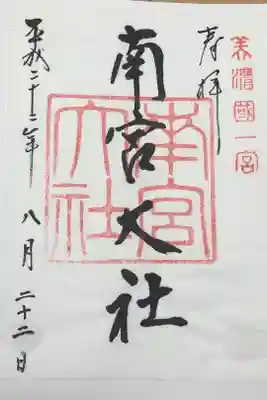 美濃國一宮
奉拝
南宮大社
南宮
大社
平成二十二年八月二十二日